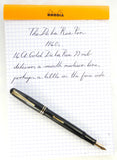 RHODIA
The De La Rue Pen
1140.
16 Ct Gold De La Rue Nib
delivers a smooth medium line,
perhaps a little on the fine side